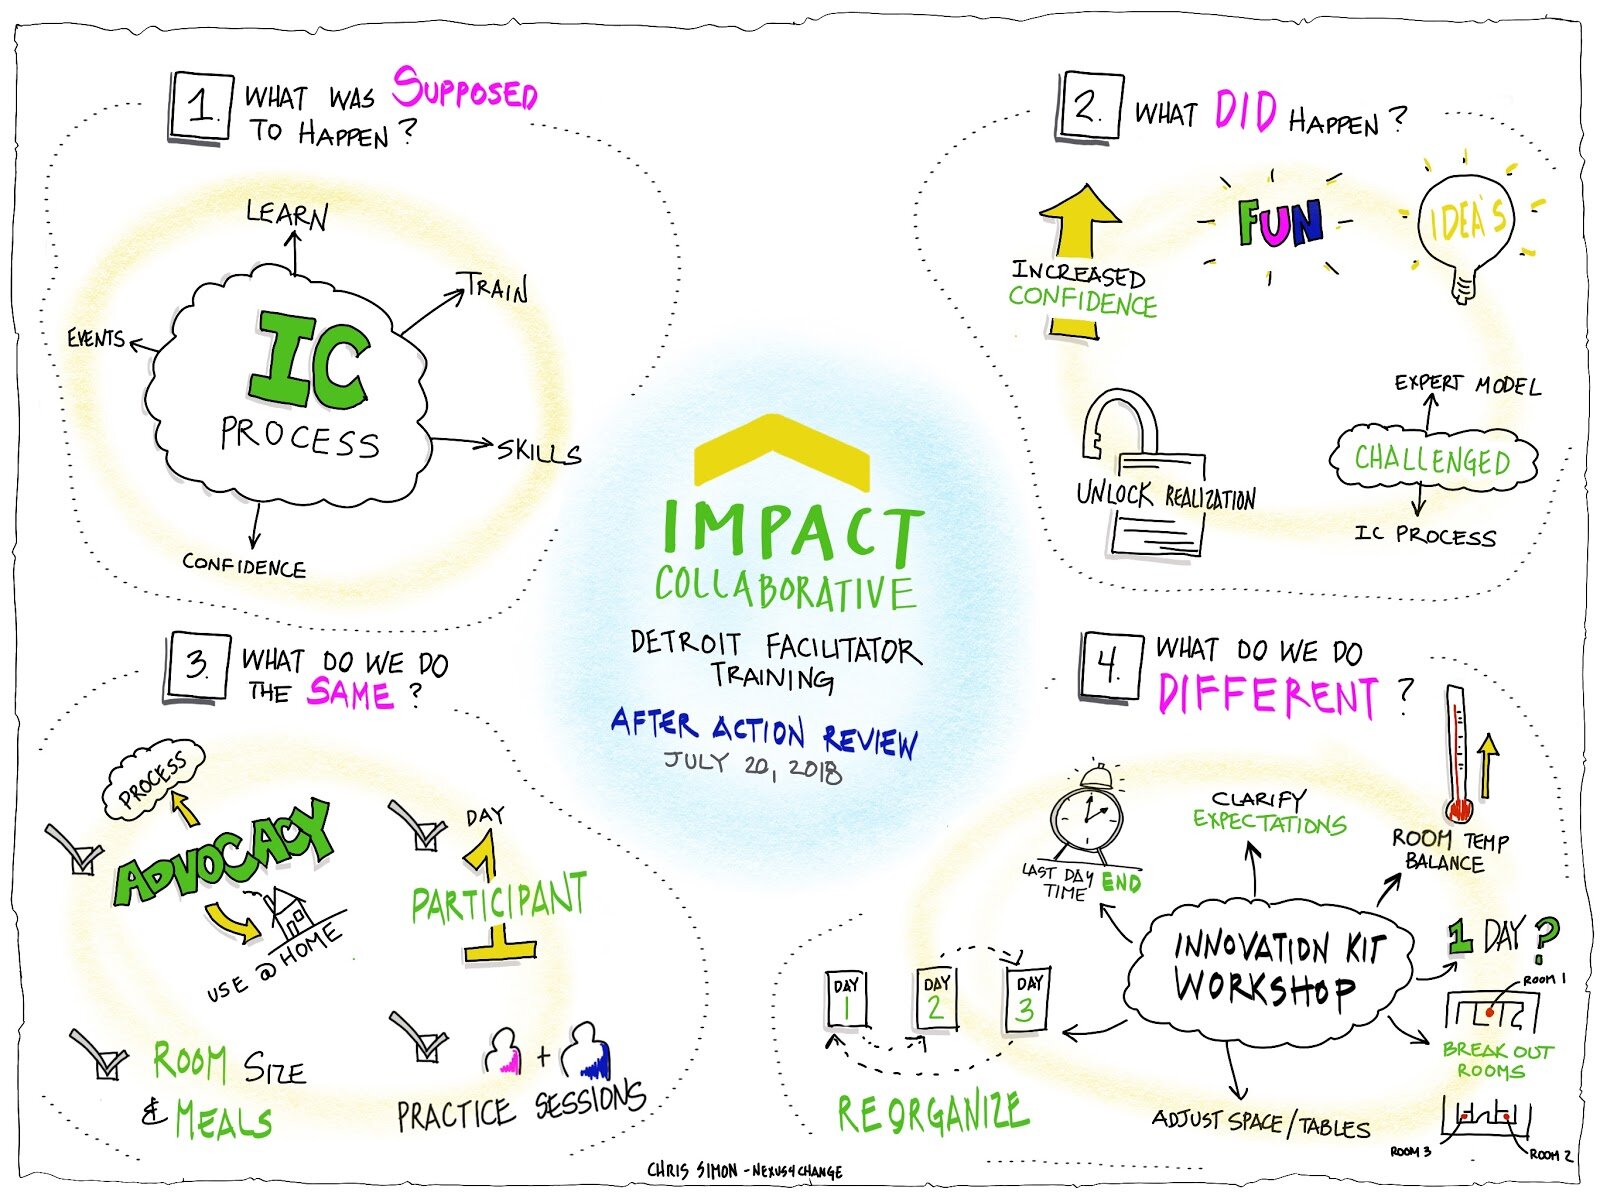 1.
WHAT WAS SUPPOSED
TO HAPPEN?
LEARN
TRAIN
EVENTS
IC
PROCESS
SKILLS
CONFIDENCE
2.
WHAT DID HAPPEN?
INCREASED
CONFIDENCE
FUN
IDEA'S
UNLOCK REALIZATION
EXPERT MODEL
CHALLENGED
IC PROCESS
IMPACT
COLLABORATIVE
DETROIT FACILITATOR
TRAINING
AFTER ACTION REVIEW
JULY 20, 2018
3.
WHAT DO WE DO
THE SAME?
PROCESS
ADVOCACY
USE @ HOME
DAY
1
PARTICIPANT
ROOM SIZE
& MEALS
+
PRACTICE SESSIONS
4.
WHAT DO WE DO
DIFFERENT?
LAST DAY END
TIME
CLARIFY
EXPECTATIONS
ROOM TEMP
BALANCE
INNOVATION KIT
WORKSHOP
1 DAY?
ROOM 1
BREAK OUT
ROOMS
ROOM 3
ROOM 2
ADJUST SPACE/TABLES
DAY
1
DAY
2
DAY
3
REORGANIZE
CHRIS SIMON - NEXUS4CHANGE